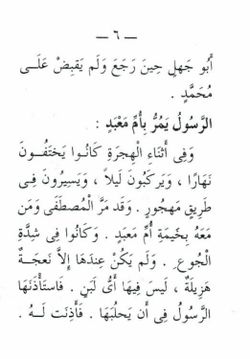 — ٦ —
أَبُو جَهلٍ حِينَ رَجَعَ وَلَم يَقبِضْ عَلَـى
مُحَمَّدٍ .
الرَّسُولُ يَمُرُّ بِأُمِّ مَعْبَدٍ :
وَفِى أَثْنَاءِ الهِجرَةِ كَانُـوا يَختَفُـونَ
نَهَارًا ، وَيَركَبُونَ لَيلاً ، وَيَسِيرُونَ فِـى
طَرِيقٍ مَهجُورٍ . وَقَد مَرَّ المُصطَفَى وَمَن
مَعَهُ بِخَيمَةِ أُمِّ مَعبَدٍ . وَكَانُوا فِى شِدَّةِ
الجُوعِ . وَلَم يَكُنْ عِندَهَا إِلاَّ نَعجَـةٌ
هَزِيلَةٌ ، لَيسَ فِيهَا أَىُّ لَبَنٍ . فَاستَأْذَنَهَا
الرَّسُولُ فِى أَن يَحلُبَهَا . فَأَذِنَت لَـهُ .